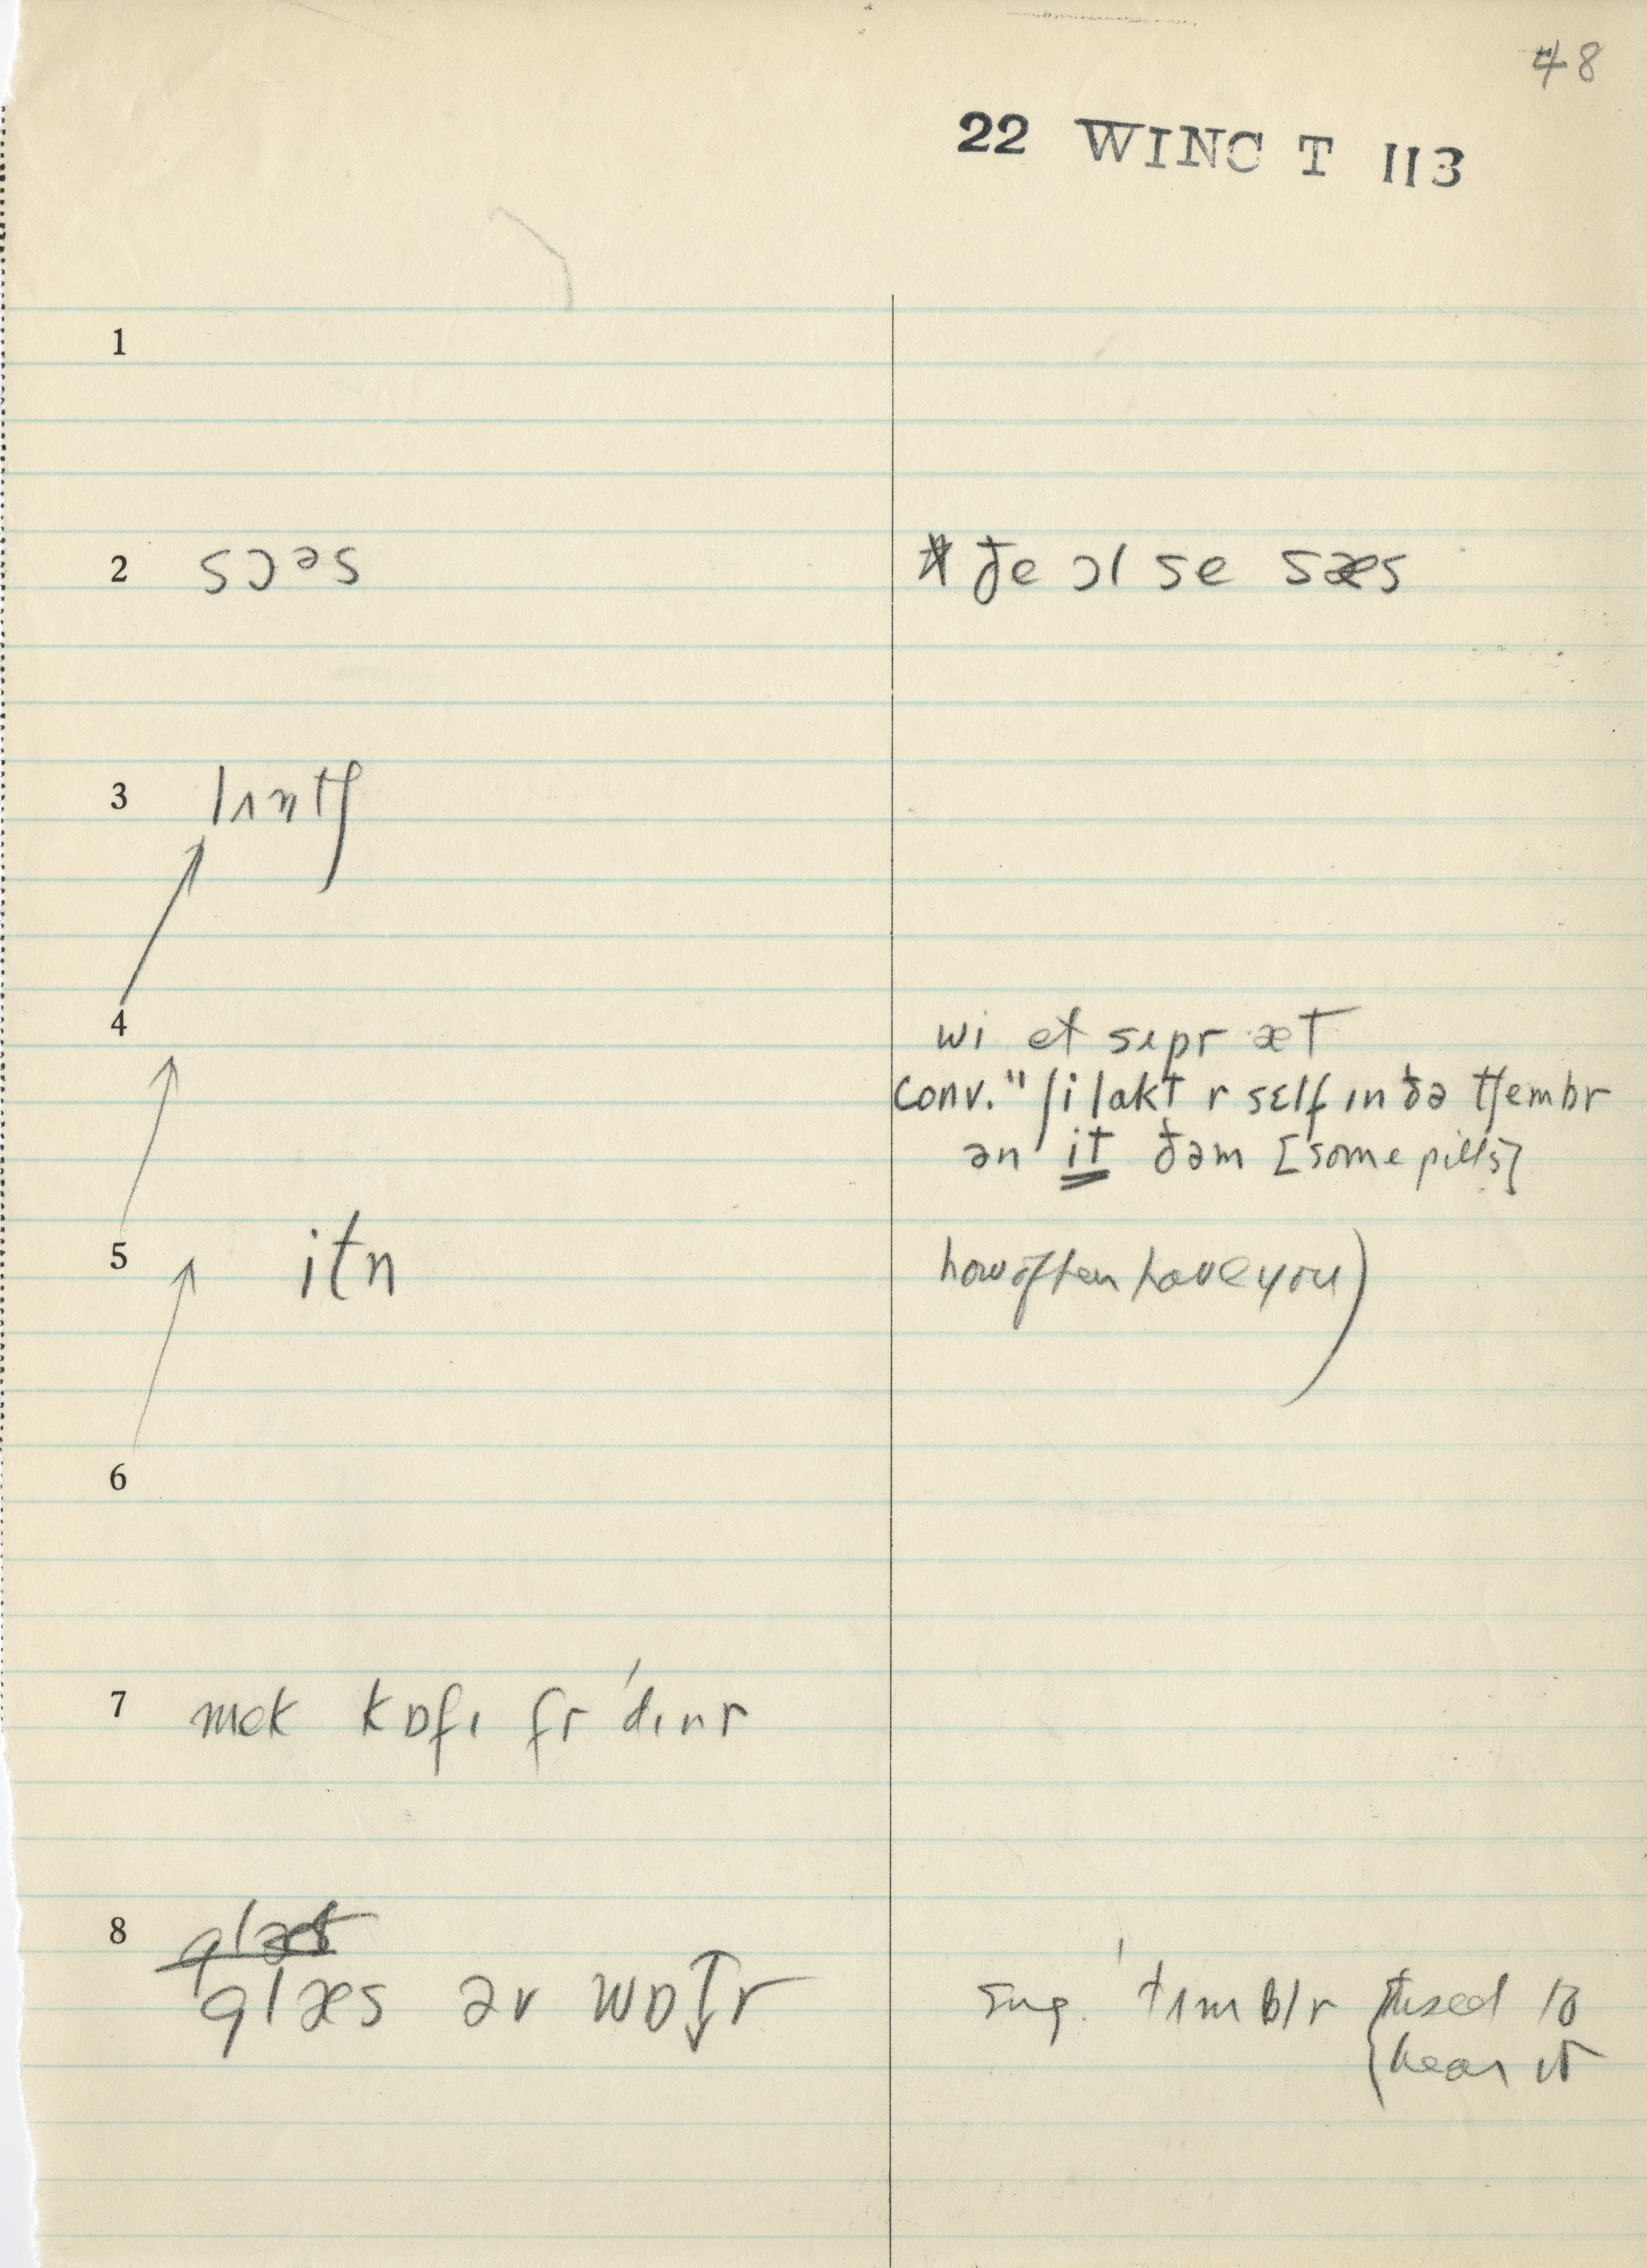 48
22 WINC T 113
1
2 sɔᵊs * ðe ɔl se sæs
3 lʌntʃ
4 wi et sʌpr æt
conv. " ʃi lakt r sɛlf ɪn ðə tʃembr
ən it ðəm [some pills]
5 itn how often have you)
6
7 mek kɒfɪ fr ˈdɪnr
8 glæt
glæs əv wɒt̬r sug. ˈtʌmblr {used to
hear it